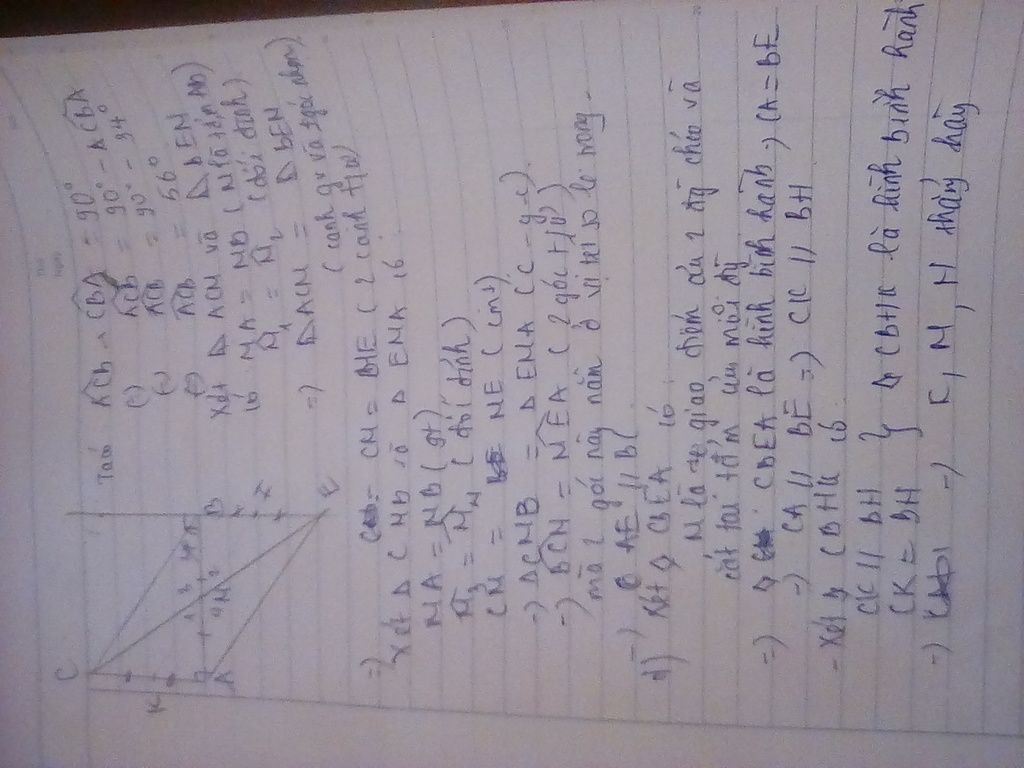 C
K
A
M
B
H
E
Ta có ACB + CBA = 90°
(=) ACB = 90° - CBA
(=) ACB = 90° - 34°
(=) ACB = 56°
Xét Δ ACM và Δ BEM
có MA = MB (M là tđ AB)
M1 = M2 (đối đỉnh)
=) Δ ACM = Δ BEM
(cạnh gv và góc nhọn)
=) CM = ME (2 cạnh t/ứ)
Xét Δ CMB và Δ EMA có
MA = MB (gt)
M3 = M4 (đối đỉnh)
CM = ME (cmt)
=) Δ CMB = Δ EMA (c-g-c)
=) BCM = MEA (2 góc t/ứ)
mà 2 góc này nằm ở vị trí so le trong
=) AE // BC
d) Xét CBEA có
M là giao điểm của 2 đg chéo và
cắt tại tđ của mỗi đg
=) CBEA là hình bình hành, CA = BE
=) CA // BE =) CK // BH
- Xét CBHK có
CK // BH
CK = BH } CBHK là hình bình hành
=) =) K, M, H thẳng hàng